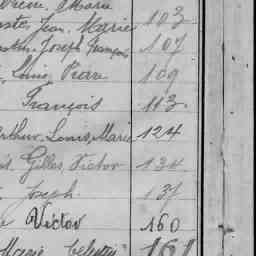 Marie 103
Jean Marie
Joseph François 107
Louis Pierre 109
François 113
Arthur, Louis, Marie 124
Gilles, Victor 134
Joseph 137
Victor 160
Marie 161